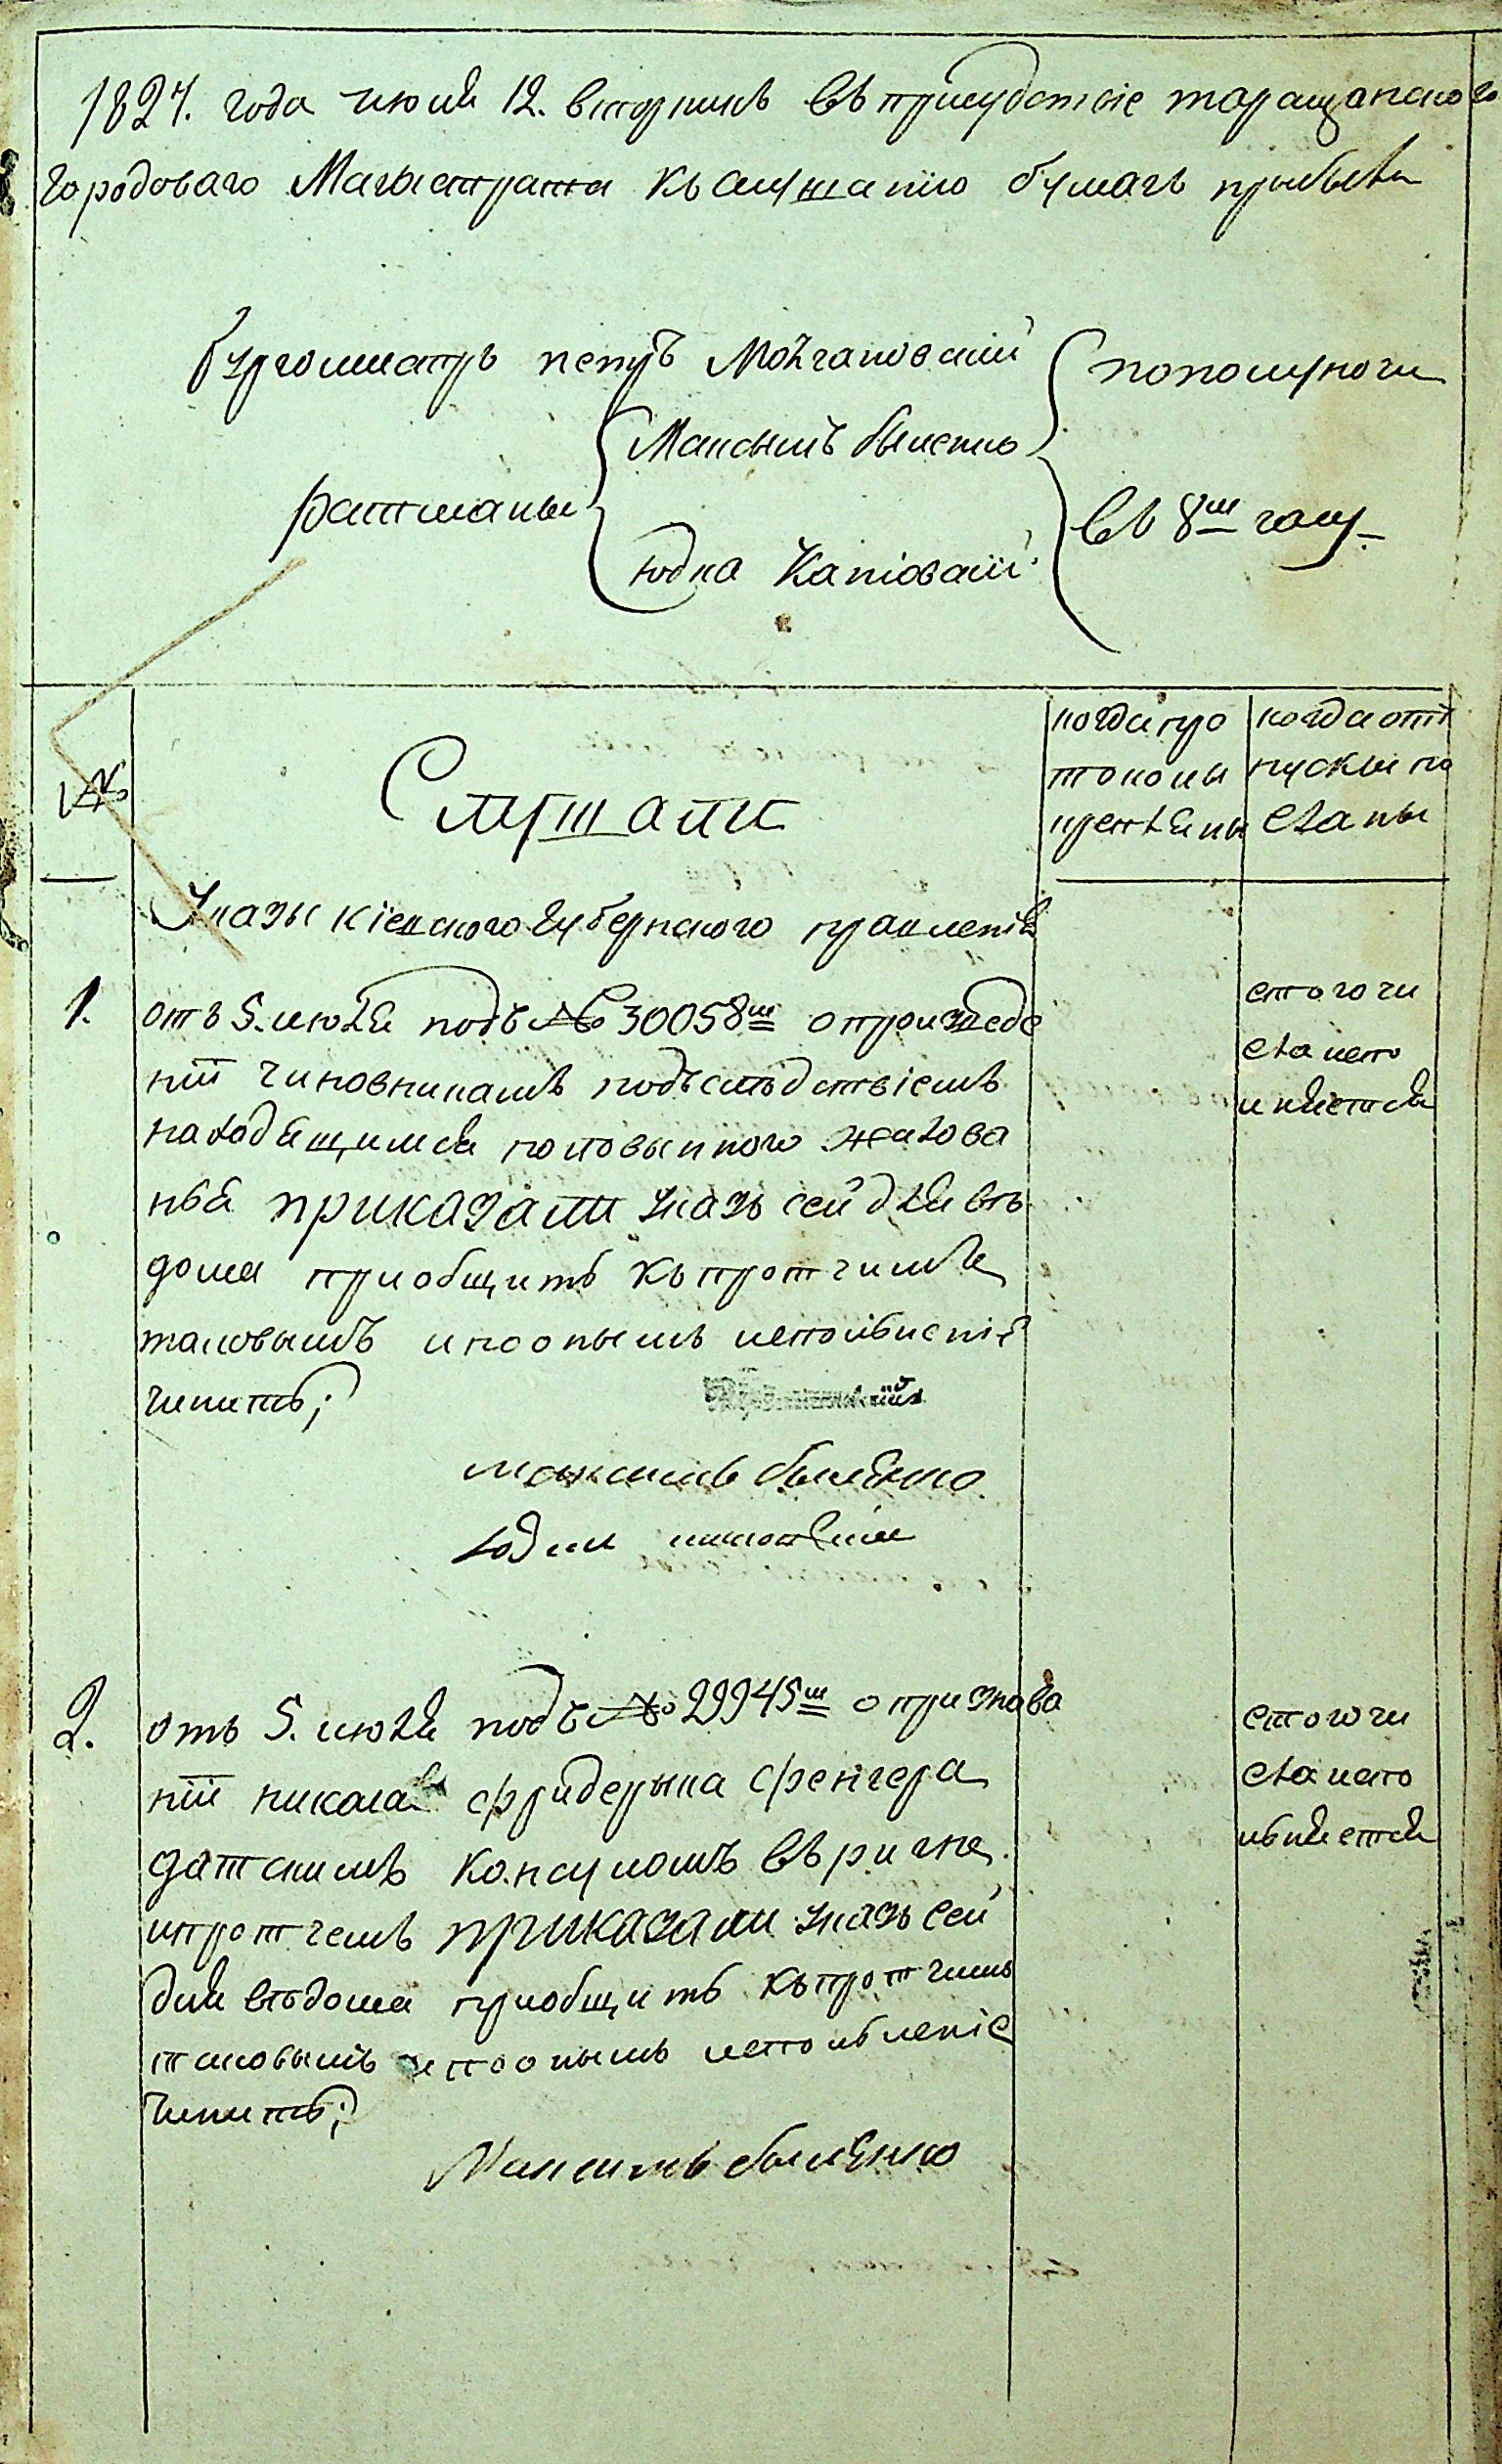 1827. года июля 12. вторникъ въ присудствіе таращанского
городоваго Магыстрата къ слушанію бумагъ прибыли
бургомистръ петръ Молчановскій
пополуночи
ратманы
Максымъ быленко
юдка Каніовскій
въ 8ш часу
№
Слушали
когда про
токолы
когда отъ
пускы по
сланы
Указы кіевского губернского правленія
1.
отъ 5. июля подъ № 30058ш о произведе
ніи чиновникамъ подъ слъдствіемъ
находящимся половынного жалова
нья приказали указъ сей для въ
дома приобщить къ протчимъ
таковымъ и по оному исполненіе
чинить;
сего числа
исполняется
максимъ быленко
2.
отъ 5. июля подъ № 29945ш о призна
ніи николая фридерыка френгера
датскимъ консуломъ въ риге
и протчемъ приказали указъ сей
для въдома приобщить къ протчимъ
таковымъ и по оному исполненіе
чинить;
Максимъ быленко